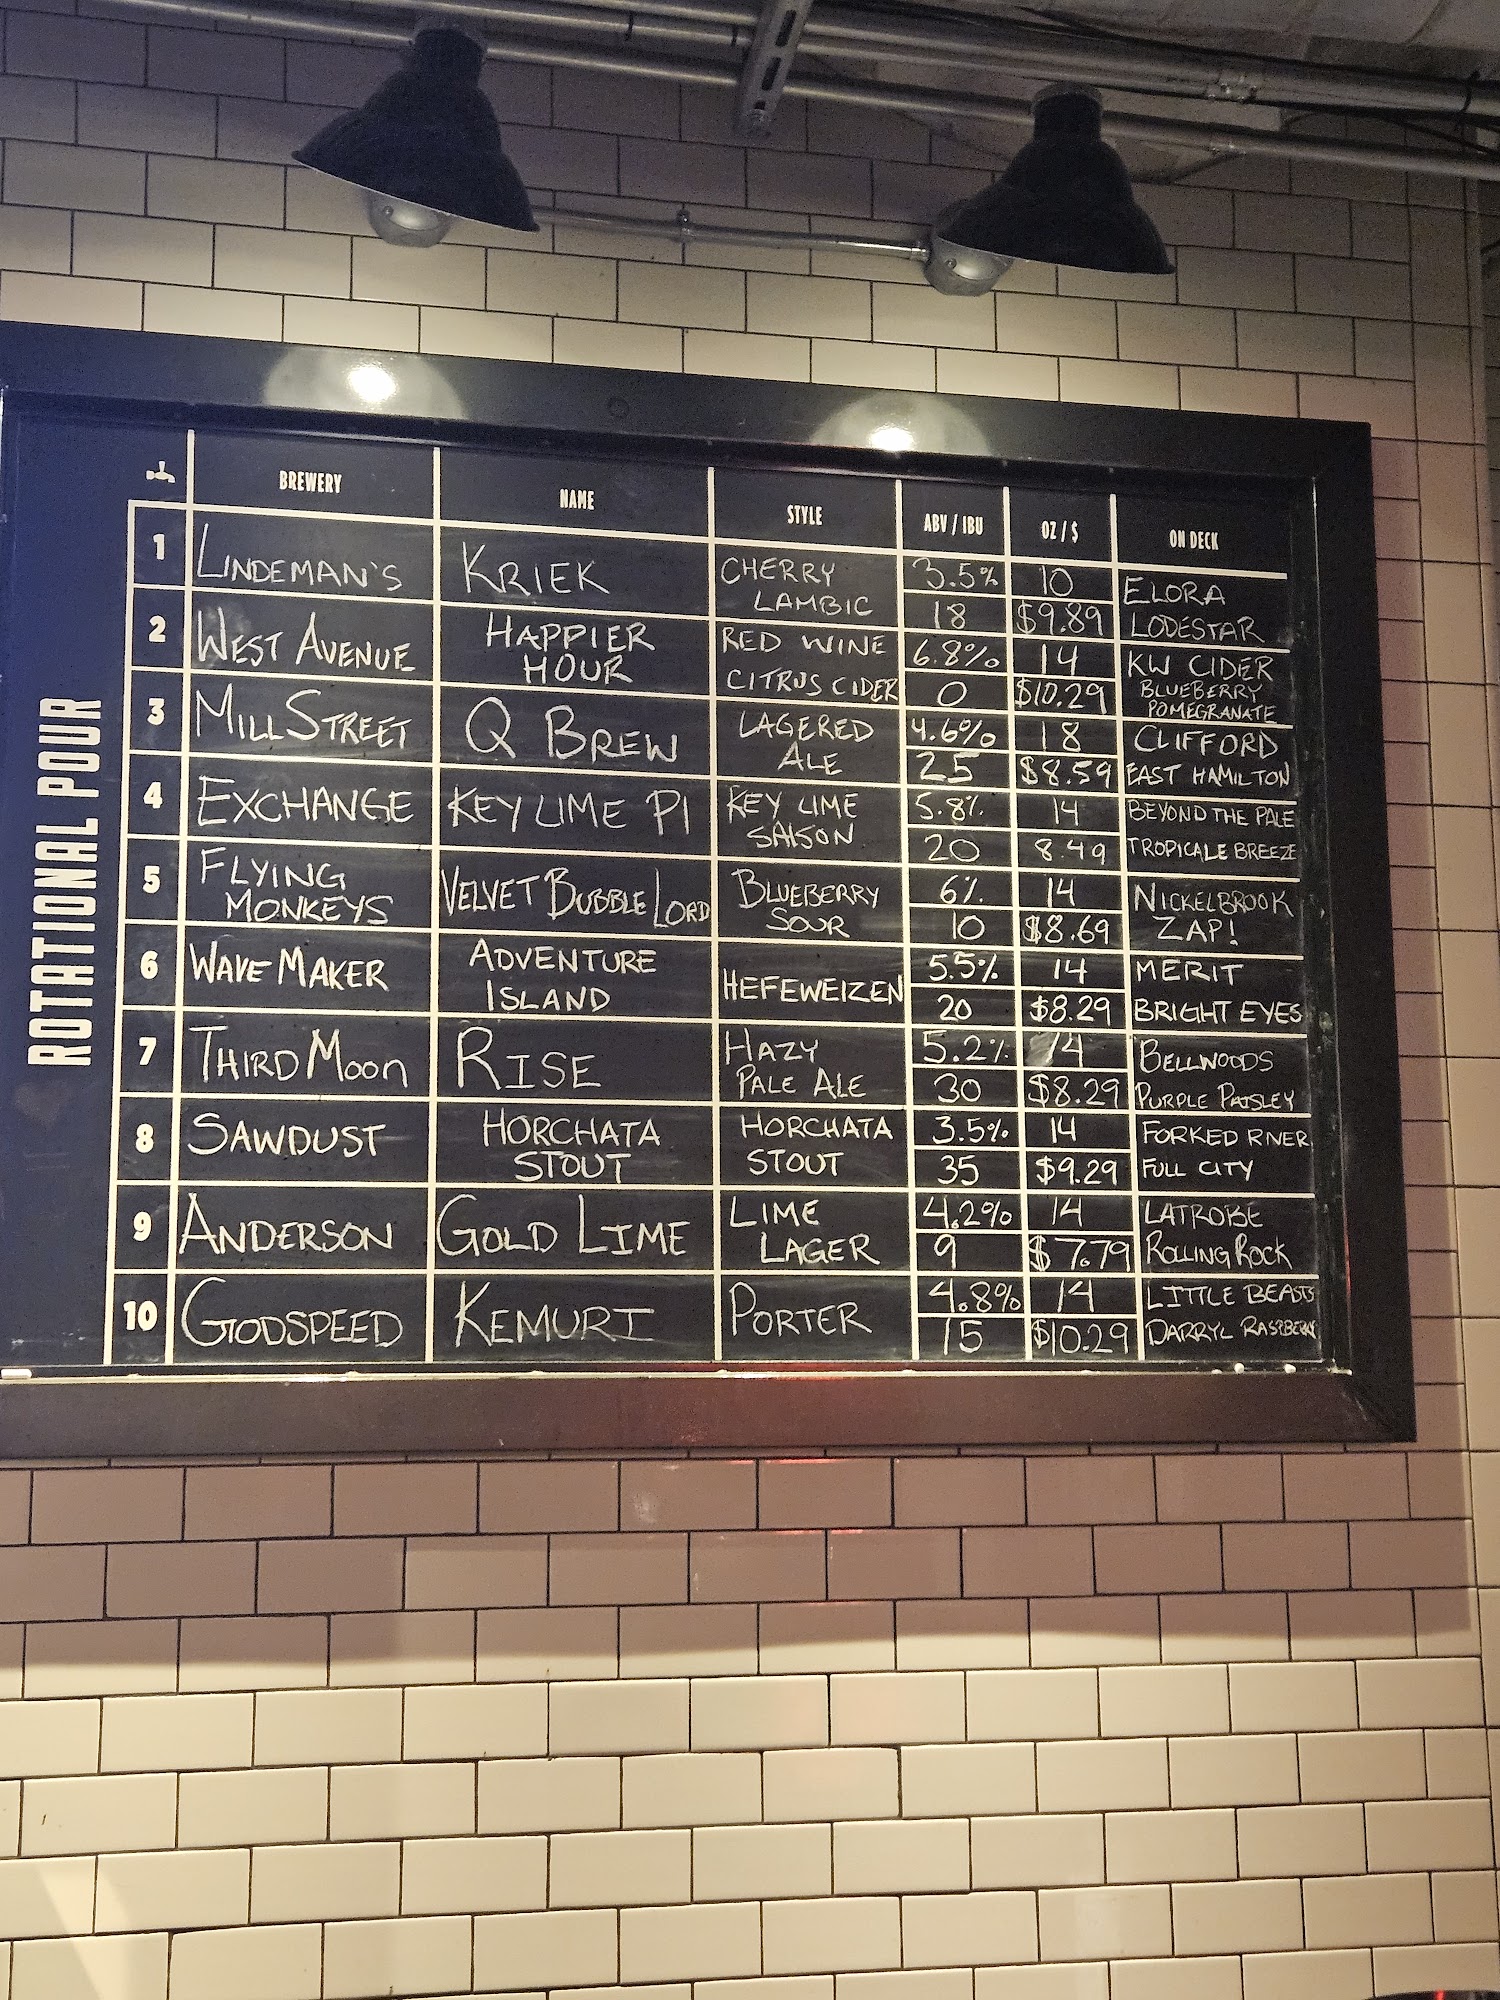 ROTATIONAL POUR
BREWERY NAME STYLE ABV / IBU OZ / $ ON DECK
1 LINDEMAN'S KRIEK CHERRY LAMBIC 3.5% 18 10 $9.89 ELORA LODESTAR
2 WEST AVENUE HAPPIER HOUR RED WINE CITRUS CIDER 6.8% 0 14 $10.29 KW CIDER BLUEBERRY POMEGRANATE
3 MILL STREET Q BREW LAGERED ALE 4.6% 25 18 $8.59 CLIFFORD EAST HAMILTON
4 EXCHANGE KEY LIME PI KEY LIME SAISON 5.8% 20 14 8.49 BEYOND THE PALE TROPICALE BREEZE
5 FLYING MONKEYS VELVET BUBBLE LORD BLUEBERRY SOUR 6% 10 14 $8.69 NICKELBROOK ZAP!
6 WAVE MAKER ADVENTURE ISLAND HEFEWEIZEN 5.5% 20 14 $8.29 MERIT BRIGHT EYES
7 THIRD MOON RISE HAZY PALE ALE 5.2% 30 14 $8.29 BELLWOODS PURPLE PAISLEY
8 SAWDUST HORCHATA STOUT HORCHATA STOUT 3.5% 35 14 $9.29 FORKED RIVER FULL CITY
9 ANDERSON GOLD LIME LIME LAGER 4.2% 9 14 $7.79 LATROBE ROLLING ROCK
10 GODSPEED KEMURI PORTER 4.8% 15 14 $10.29 LITTLE BEASTS DARRYL RASPBERRY